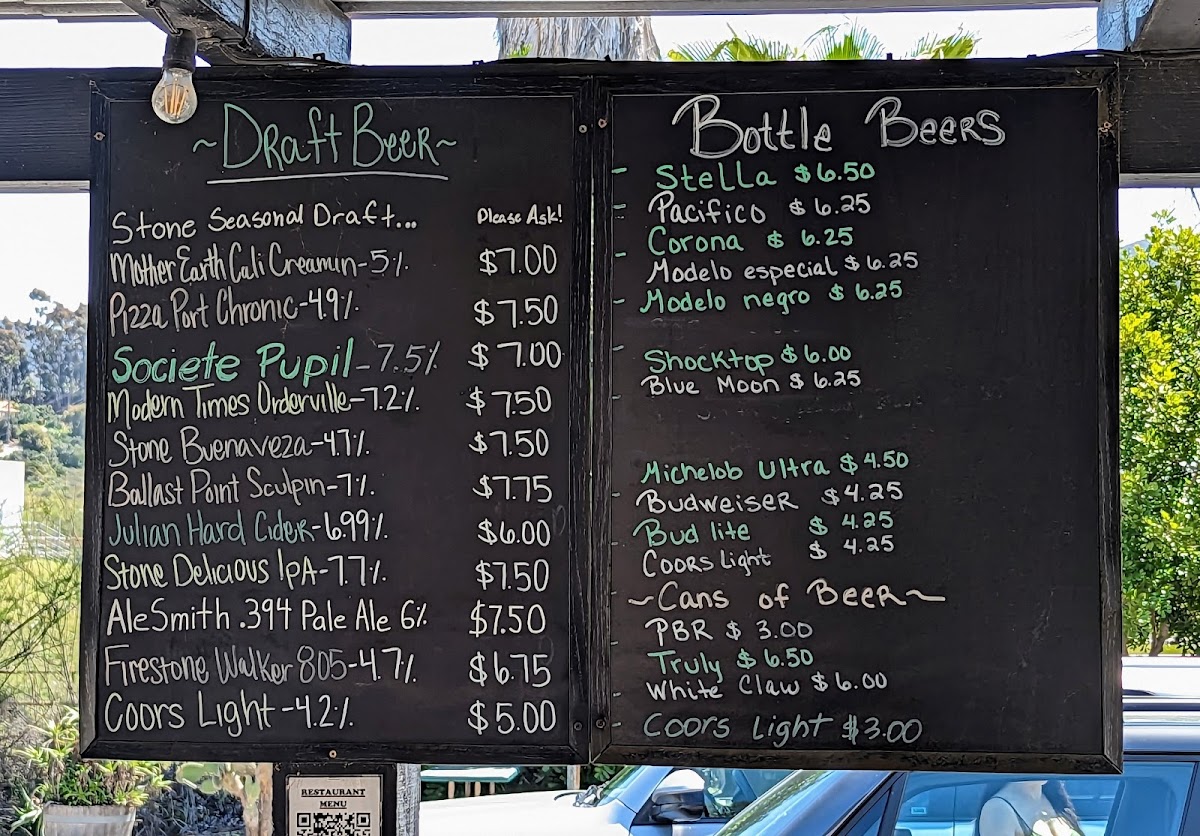 ~Draft Beer~
Stone Seasonal Draft... Please Ask!
Mother Earth Cali Creamin-5% $7.00
Pizza Port Chronic-4.9% $7.50
Societe Pupil-7.5% $7.00
Modern Times Orderville-7.2% $7.50
Stone Buenaveza-4.7% $7.50
Ballast Point Sculpin-7% $7.75
Julian Hard Cider-6.99% $6.00
Stone Delicious IPA-7.7% $7.50
AleSmith .394 Pale Ale 6% $7.50
Firestone Walker 805-4.7% $6.75
Coors Light-4.2% $5.00
Bottle Beers
Stella $6.50
Pacifico $6.25
Corona $6.25
Modelo especial $6.25
Modelo negro $6.25
Shocktop $6.00
Blue Moon $6.25
Michelob Ultra $4.50
Budweiser $4.25
Bud lite $4.25
Coors Light $4.25
~Cans of Beer~
PBR $3.00
Truly $6.50
White Claw $6.00
Coors Light $3.00
RESTAURANT
MENU